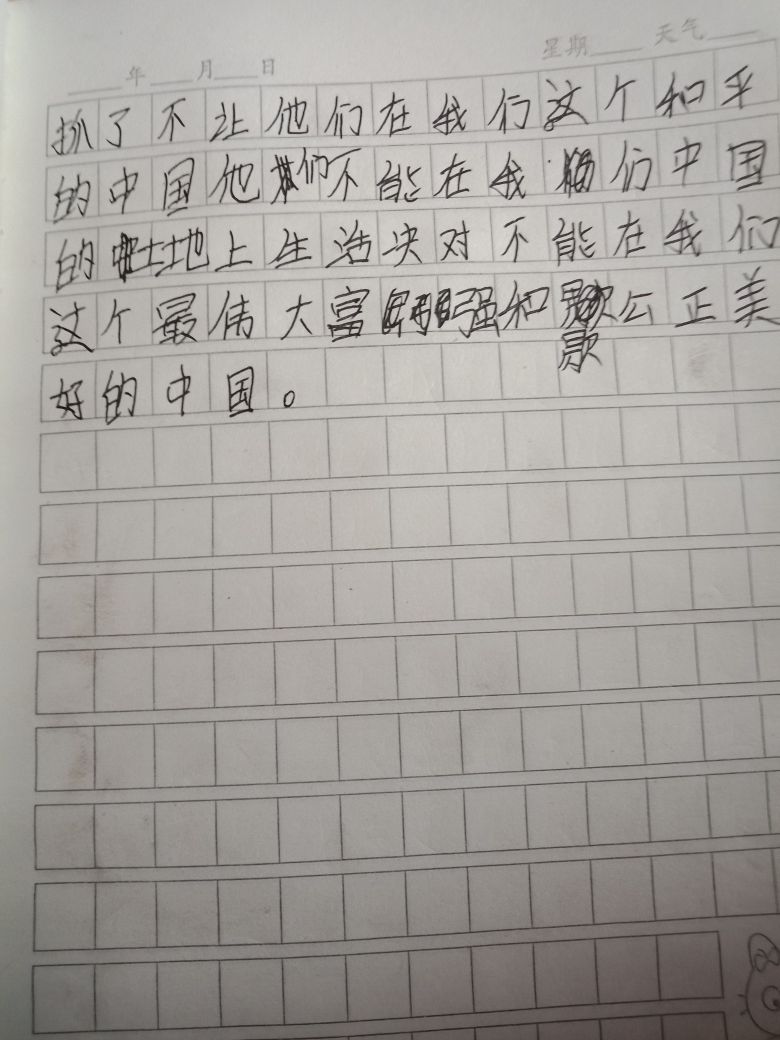 年 月 日 星期 天气
抓了不让他们在我们这个和平
的中国他们不能在我们中国
的土地上生活决对不能在我们
这个最伟大富强和公正美
好的中国。